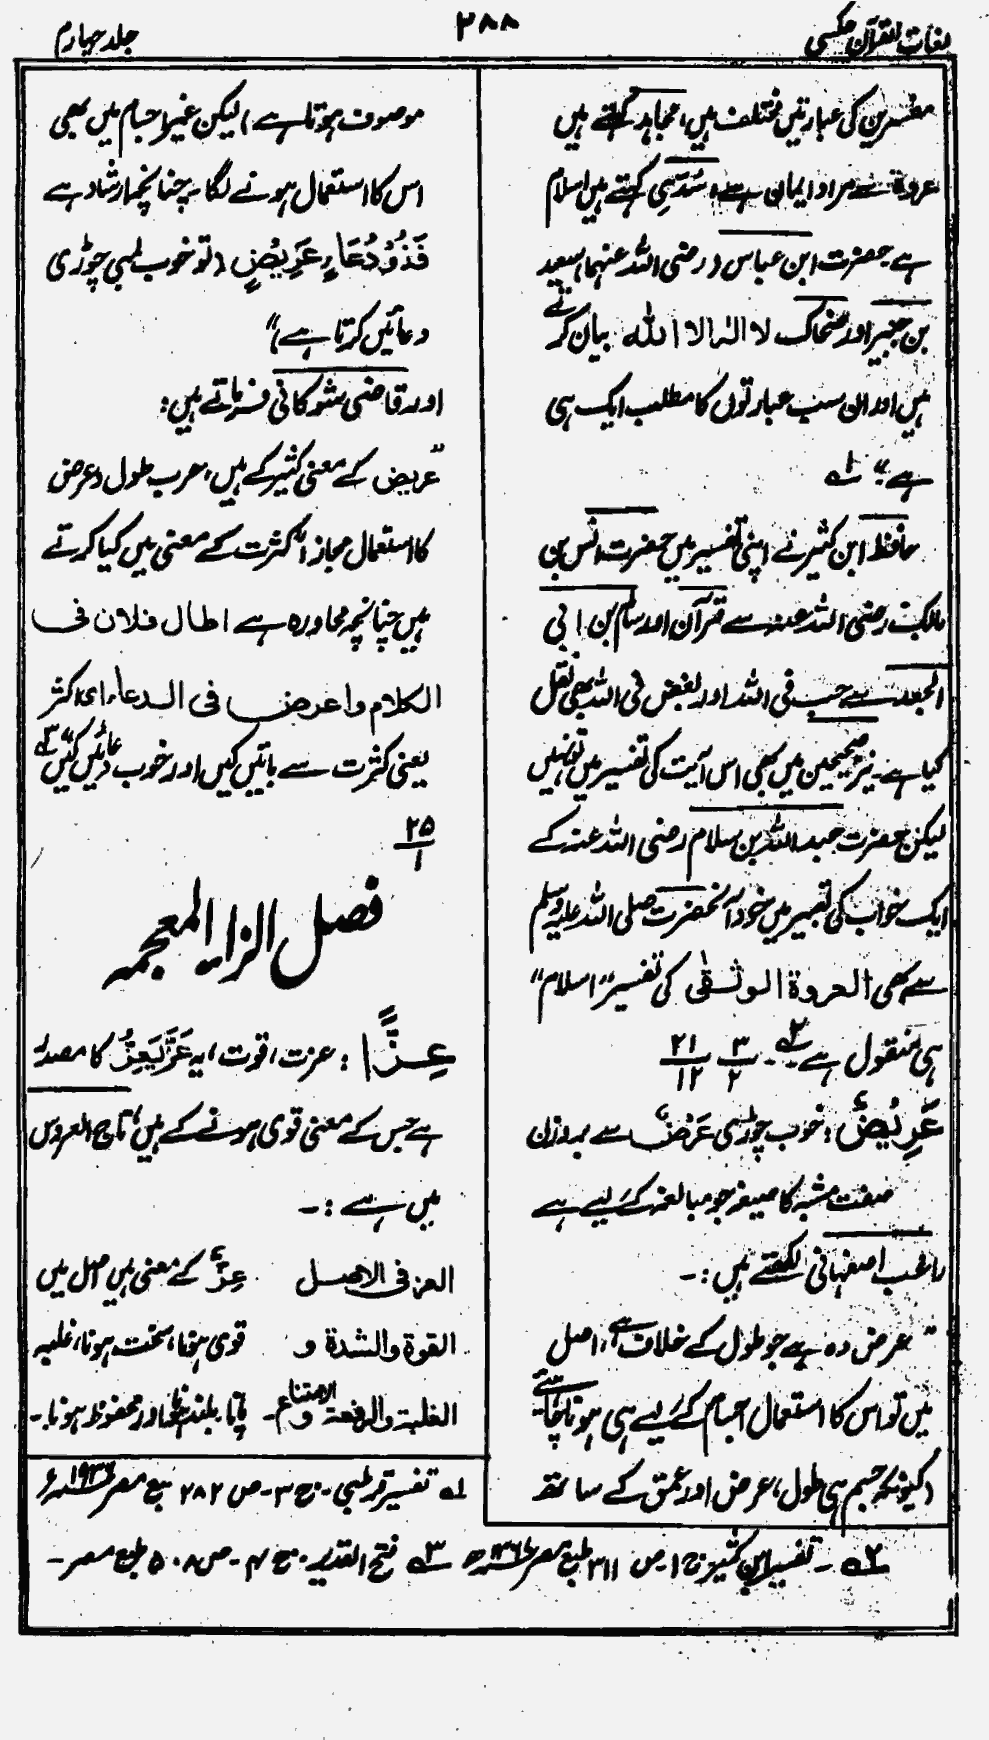 لغات القرآن عکسی
۲۸۸
جلد چہارم
مفسرین کی عبارتیں مختلف ہیں، مجاہد کہتے ہیں
عروۃ سے مراد ایمان ہے، سُدّی کہتے ہیں اسلام
ہے حضرت ابن عباس (رضی اللہ عنہما) سعید
بن جبیر اور ضحاک لا الہ الا اللہ بیان کرتے
ہیں اور ان سب عبارتوں کا مطلب ایک ہی
ہے" ۱ـہ
حافظ ابن کثیر نے اپنی تفسیر میں حضرت انس بن
مالک رضی اللہ عنہ سے قرآن اور سالم بن ابی
الجعد سے حب فی اللہ اور بغض فی اللہ بھی نقل
کیا ہے۔ نیز صحیحین میں بھی اس آیت کی تفسیر میں تو نہیں
لیکن حضرت عبداللہ بن سلام رضی اللہ عنہ کے
ایک خواب کی تعبیر میں خود آنحضرت صلی اللہ علیہ وسلم
سے بھی العروة الوثقیٰ کی تفسیر "اسلام"
ہی منقول ہے ۲ـہ - - ۳/۲ ۲۱/۱۲
عَرِیْضٌ: خوب چوڑی عَرْضٌ سے بروزن
صفت مشبہ کا صیغہ جو مبالغہ کے لیے ہے
راغب اصفہانی لکھتے ہیں:۔
"عرض وہ ہے جو طول کے خلاف ہے، اصل
میں تو اس کا استعمال اجسام کے لیے ہی ہونا چاہئے
(کیونکہ جسم ہی طول، عرض اور عمق کے ساتھ
موصوف ہوتا ہے) لیکن غیر اجسام میں بھی
اس کا استعمال ہونے لگا۔ چنانچہ ارشاد ہے
فَذُوْ دُعَاءٍ عَرِیْضٍ (تو خوب لمبی چوڑی
دعائیں کرتا ہے)"
اور قاضی شوکانی فرماتے ہیں:
"عریض کے معنی کثیر کے ہیں، عرب طول و عرض
کا استعمال مجازاً کثرت کے معنی میں کیا کرتے
ہیں چنانچہ محاورہ ہے اطال فلان فی
الکلام واعرض فی الدعاء ای اکثر
یعنی کثرت سے باتیں کیں اور خوب دعائیں کیں" ۳ـہ
۲۵/۱
فصل الزاء المعجمہ
عِزًّا: عزت، قوت، یہ عَزَّ یَعِزُّ کا مصدر
ہے جس کے معنی قوی ہونے کے ہیں، تاج العروس
میں ہے:۔
العز فی الاصل عِزٌّ کے معنی ہیں اصل میں
القوة والشدة و قوی ہونا، سخت ہونا، غلبہ
الغلبة والرفعة و الامتناع۔ پانا، بلند ہونا اور محفوظ ہونا۔
۱ـہ تفسیر قرطبی۔ ج ۳۔ ص ۲۸۲ طبع مصر ۱۹۳۶ء
۲ـہ۔ تفسیر ابن کثیر ج ۱ ص ۳۱۱ طبع مصر ۳ـہ فتح القدیر۔ ج ۴۔ ص ۵۰۸ طبع مصر۔